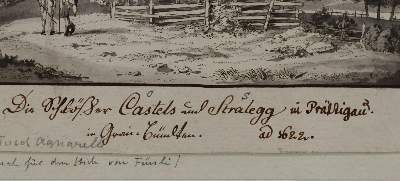 Die Schlößer Castels und Stralegg in Prättigau.
in Grau-Bündten. ad 1622.
Tusch aquarell
für den Stich von Füssli)